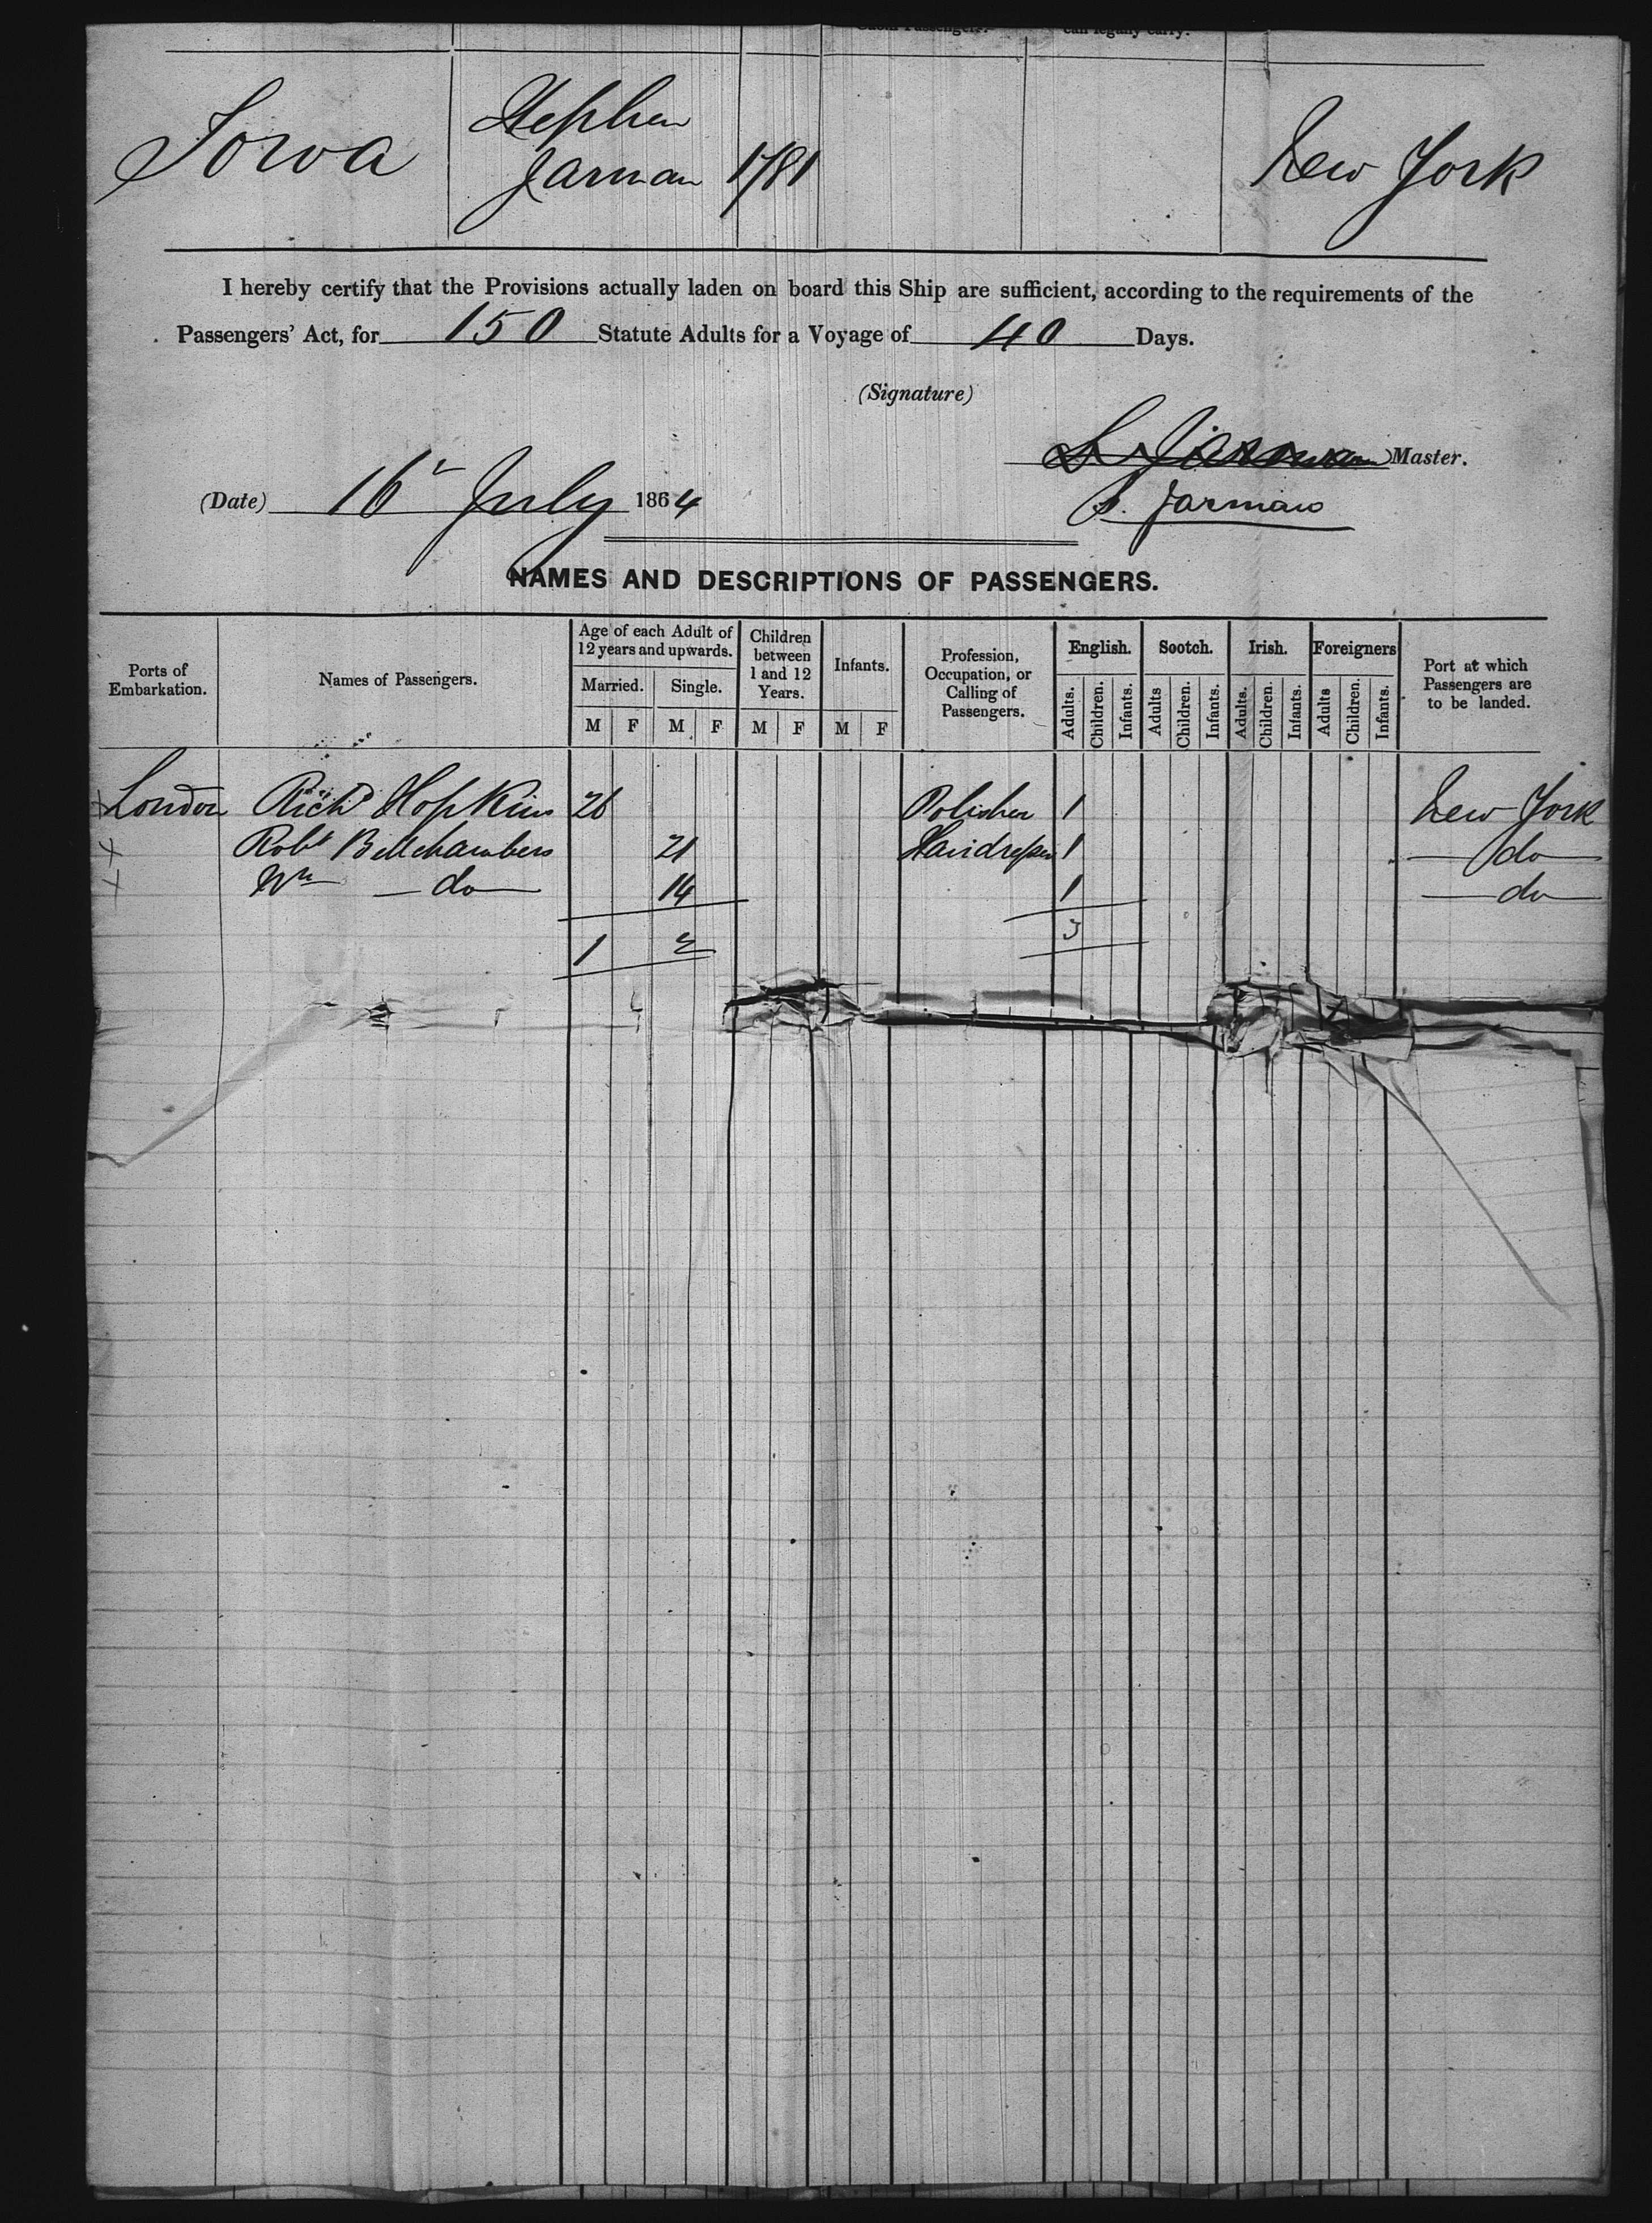 can legally carry.
Iowa Stephen Jarman 1781 New York
I hereby certify that the Provisions actually laden on board this Ship are sufficient, according to the requirements of the
Passengers' Act, for 150 Statute Adults for a Voyage of 40 Days.
(Signature)
S Jarman Master.
(Date) 16th July 1864 S. Jarman
NAMES AND DESCRIPTIONS OF PASSENGERS.
Ports of Embarkation. Names of Passengers. Age of each Adult of 12 years and upwards. Children between 1 and 12 Years. Infants. Profession, Occupation, or Calling of Passengers. English. Scotch. Irish. Foreigners Port at which Passengers are to be landed.
Married. Single.
M F M F M F M F Adults. Children. Infants. Adults Children. Infants. Adults. Children. Infants. Adults Children. Infants.
London Richd Hopkins 26 Polisher 1 New York
Robt Bellchambers 21 Hairdresser 1 do
Wm do 14 1 do
1 2 3